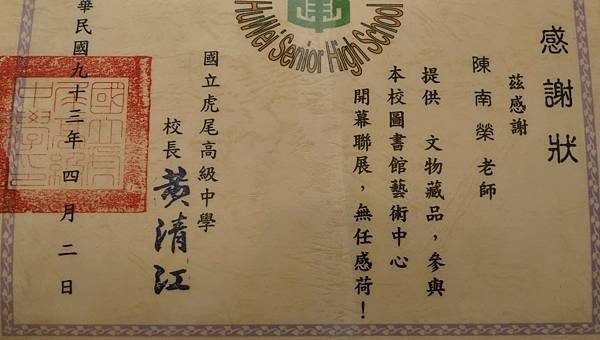 HuWei Senior High School
感謝狀
茲感謝
陳南榮老師
提供 文物藏品，參與
本校圖書館藝術中心
開幕聯展，無任感荷！
國立虎尾高級中學
校長 黃清江
華民國九十三年四月二日